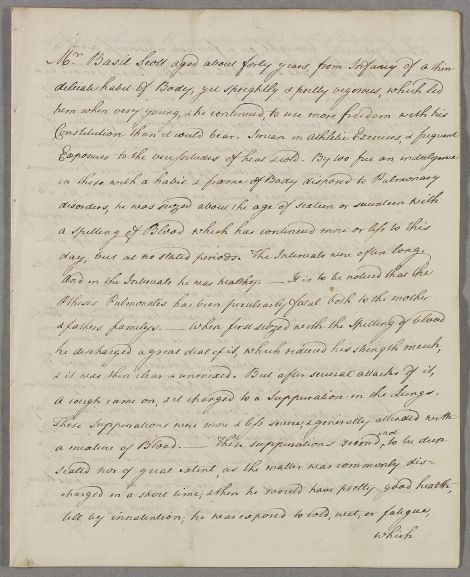 Mr. Basil Scott aged about forty years, from Infancy of a thin
delicate habit of Body, yet sprightly & pretty vigorous, which led
him when very young, & he continued, to use more freedom with his
Constitution than it would bear. in Athletic Exercises, & frequent
Exposures to the vicissitudes of heat & cold. By two free an indulgence
in these with a habit & frame of Body disposed to Pulmonary
disorders, he was seized about the age of sixteen or seventeen with
a Spitting of Blood which has continued more or less to this
day, but at no stated periods. The Intervals were often long.
And in the Intervals he was healthy. — It is to be noticed that the
Pthisis Pulmonalis has been peculiarly fatal both to the mother
& fathers familys. — When first seized with the Spitting of blood
he discharged a great deal of it, which reduced his strength much,
& it was thin clear & unmixed. But after several attacks of it,
a cough came on, & it changed to a Suppuration in the Lungs.
These Suppurations were more & less severe & generally attended with
a mixture of Blood. — These Suppurations seemed not to be deep
seated nor of great extent, as the matter was commonly dis-
charged in a short time, & then he would have pretty good health,
till by inattention, he was exposed to cold, wet, or fatigue,
which